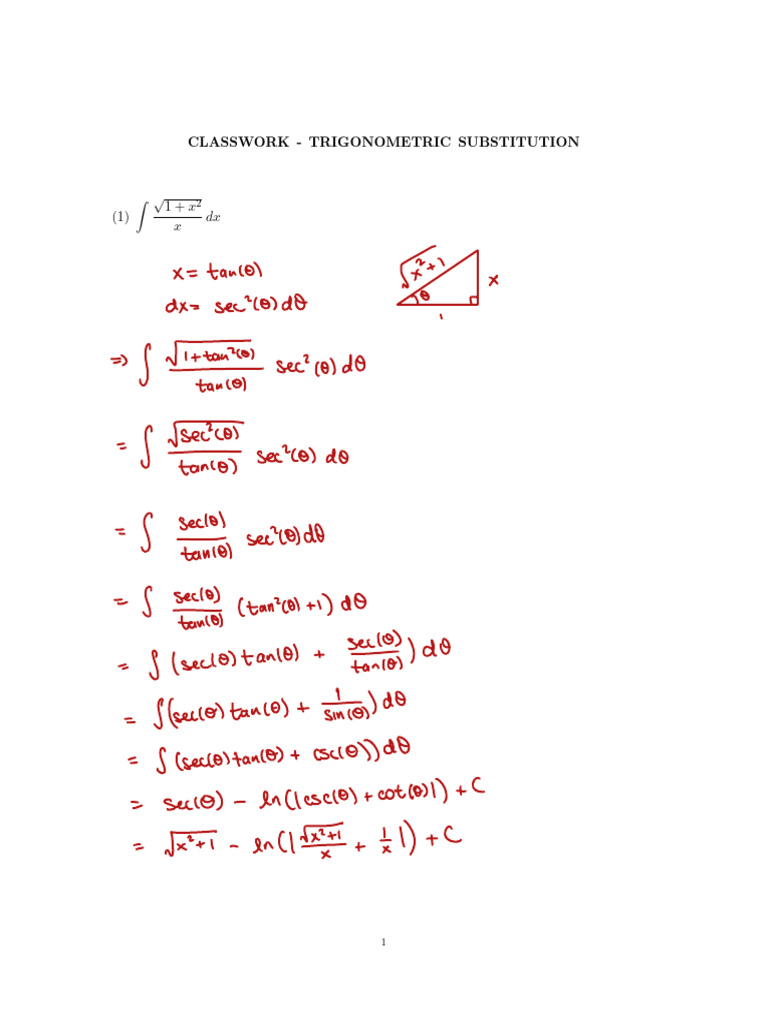 CLASSWORK - TRIGONOMETRIC SUBSTITUTION
(1) ∫ √(1 + x²)/x dx
x = tan(θ)
dx = sec²(θ) dθ
√(x²+1)
θ
x
1
⇒ ∫ √(1+tan²(θ))/tan(θ) sec²(θ) dθ
= ∫ √(sec²(θ))/tan(θ) sec²(θ) dθ
= ∫ sec(θ)/tan(θ) sec²(θ) dθ
= ∫ sec(θ)/tan(θ) (tan²(θ) + 1) dθ
= ∫ (sec(θ) tan(θ) + sec(θ)/tan(θ)) dθ
= ∫ (sec(θ) tan(θ) + 1/sin(θ)) dθ
= ∫ (sec(θ) tan(θ) + csc(θ)) dθ
= sec(θ) - ln(|csc(θ) + cot(θ)|) + C
= √(x²+1) - ln(|√(x²+1)/x + 1/x|) + C
1